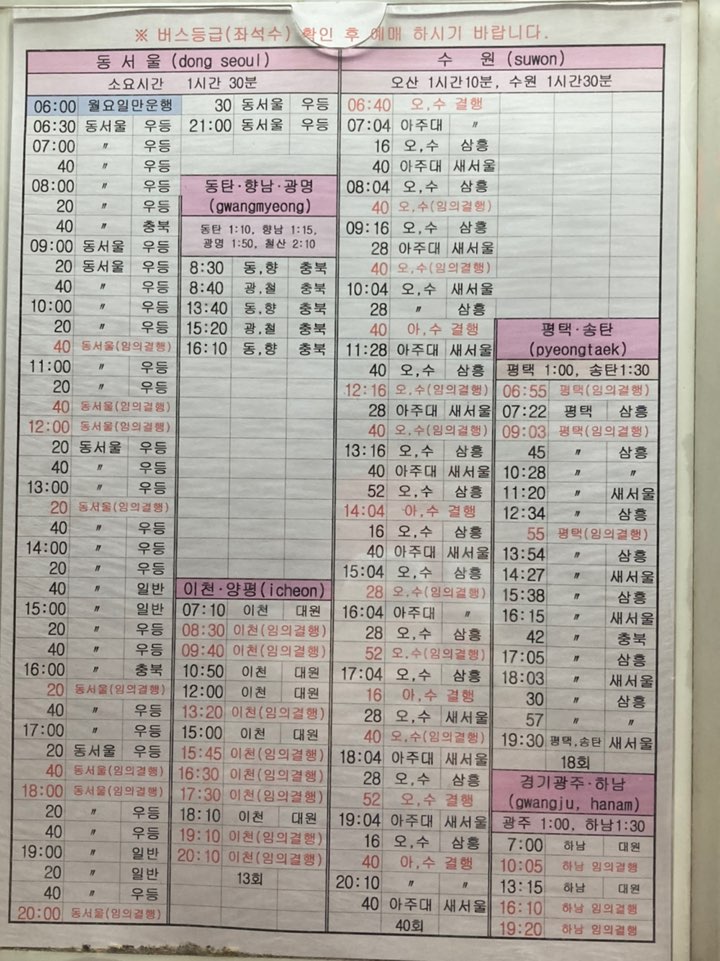 ※ 버스등급(좌석수) 확인 후 예매 하시기 바랍니다.
동 서 울 (dong seoul)
소요시간 1시간 30분
06:00 월요일만운행
06:30 동서울 우등
07:00 〃 우등
40 〃 우등
08:00 〃 우등
20 〃 우등
40 〃 충북
09:00 동서울 우등
20 동서울 우등
40 〃 우등
10:00 〃 우등
20 〃 우등
40 동서울(임의결행)
11:00 〃 우등
20 〃 우등
40 동서울(임의결행)
12:00 동서울(임의결행)
20 동서울 우등
40 〃 우등
13:00 〃 우등
20 동서울(임의결행)
40 〃 우등
14:00 〃 우등
20 〃 우등
40 〃 일반
15:00 〃 일반
20 〃 우등
40 〃 우등
16:00 〃 충북
20 동서울(임의결행)
40 〃 우등
17:00 〃 우등
20 동서울 우등
40 동서울(임의결행)
18:00 동서울(임의결행)
20 〃 우등
40 〃 우등
19:00 〃 일반
20 〃 일반
40 〃 우등
20:00 동서울(임의결행)
30 동서울 우등
21:00 동서울 우등
동탄·향남·광명
(gwangmyeong)
동탄 1:10, 향남 1:15,
광명 1:50, 철산 2:10
8:30 동,향 충북
8:40 광,철 충북
13:40 동,향 충북
15:20 광,철 충북
16:10 동,향 충북
이천·양평(icheon)
07:10 이천 대원
08:30 이천(임의결행)
09:40 이천(임의결행)
10:50 이천 대원
12:00 이천 대원
13:20 이천(임의결행)
15:00 이천 대원
15:45 이천(임의결행)
16:30 이천(임의결행)
17:30 이천(임의결행)
18:10 이천 대원
19:10 이천(임의결행)
20:10 이천(임의결행)
13회
수 원 (suwon)
오산 1시간10분, 수원 1시간30분
06:40 오,수 결행
07:04 아주대 〃
16 오,수 삼흥
40 아주대 새서울
08:04 오,수 삼흥
40 오,수(임의결행)
09:16 오,수 삼흥
28 아주대 새서울
40 오,수(임의결행)
10:04 오,수 새서울
28 〃 삼흥
40 아,수 결행
11:28 아주대 새서울
40 오,수 삼흥
12:16 오,수(임의결행)
28 아주대 새서울
40 오,수(임의결행)
13:16 오,수 삼흥
40 아주대 새서울
52 오,수 삼흥
14:04 아,수 결행
16 오,수 삼흥
40 아주대 새서울
15:04 오,수 삼흥
28 오,수(임의결행)
16:04 아주대 〃
28 오,수 삼흥
52 오,수(임의결행)
17:04 오,수 삼흥
16 아,수 결행
28 오,수 새서울
40 오,수(임의결행)
18:04 아주대 새서울
28 오,수 삼흥
52 오,수 결행
19:04 아주대 새서울
16 오,수 삼흥
40 아,수 결행
20:10 〃 〃
40 아주대 새서울
40회
평택·송탄
(pyeongtaek)
평택 1:00, 송탄1:30
06:55 평택(임의결행)
07:22 평택 삼흥
09:03 평택(임의결행)
45 〃 삼흥
10:28 〃 〃
11:20 〃 새서울
12:34 〃 삼흥
55 평택(임의결행)
13:54 〃 삼흥
14:27 〃 새서울
15:38 〃 삼흥
16:15 〃 새서울
42 〃 충북
17:05 〃 삼흥
18:03 〃 새서울
30 〃 삼흥
57 〃 〃
19:30 평택,송탄 새서울
18회
경기광주·하남
(gwangju, hanam)
광주 1:00, 하남1:30
7:00 하남 대원
10:05 하남 임의결행
13:15 하남 대원
16:10 하남 임의결행
19:20 하남 임의결행